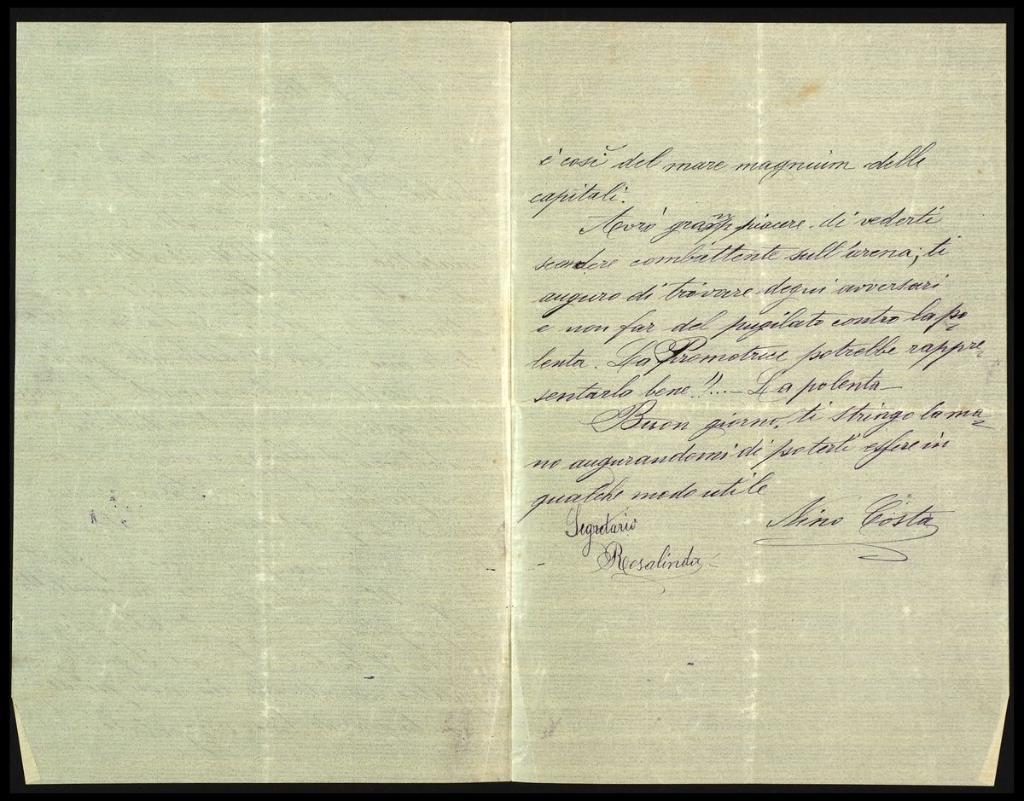 è così del mare magnum delle
capitali.
Avrò gran piacere di vederti
scendere combattente sull'arena; ti
auguro di trovare degni avversari
e non far del pugilato contro la po-
lenta. La Promotrice potrebbe rappre-
sentarla bene!!... La polenta
Buon giorno, ti stringo la ma-
no augurandomi di poterti essere in
qualche modo utile
Nino Costa
Segretario
Rosalinda